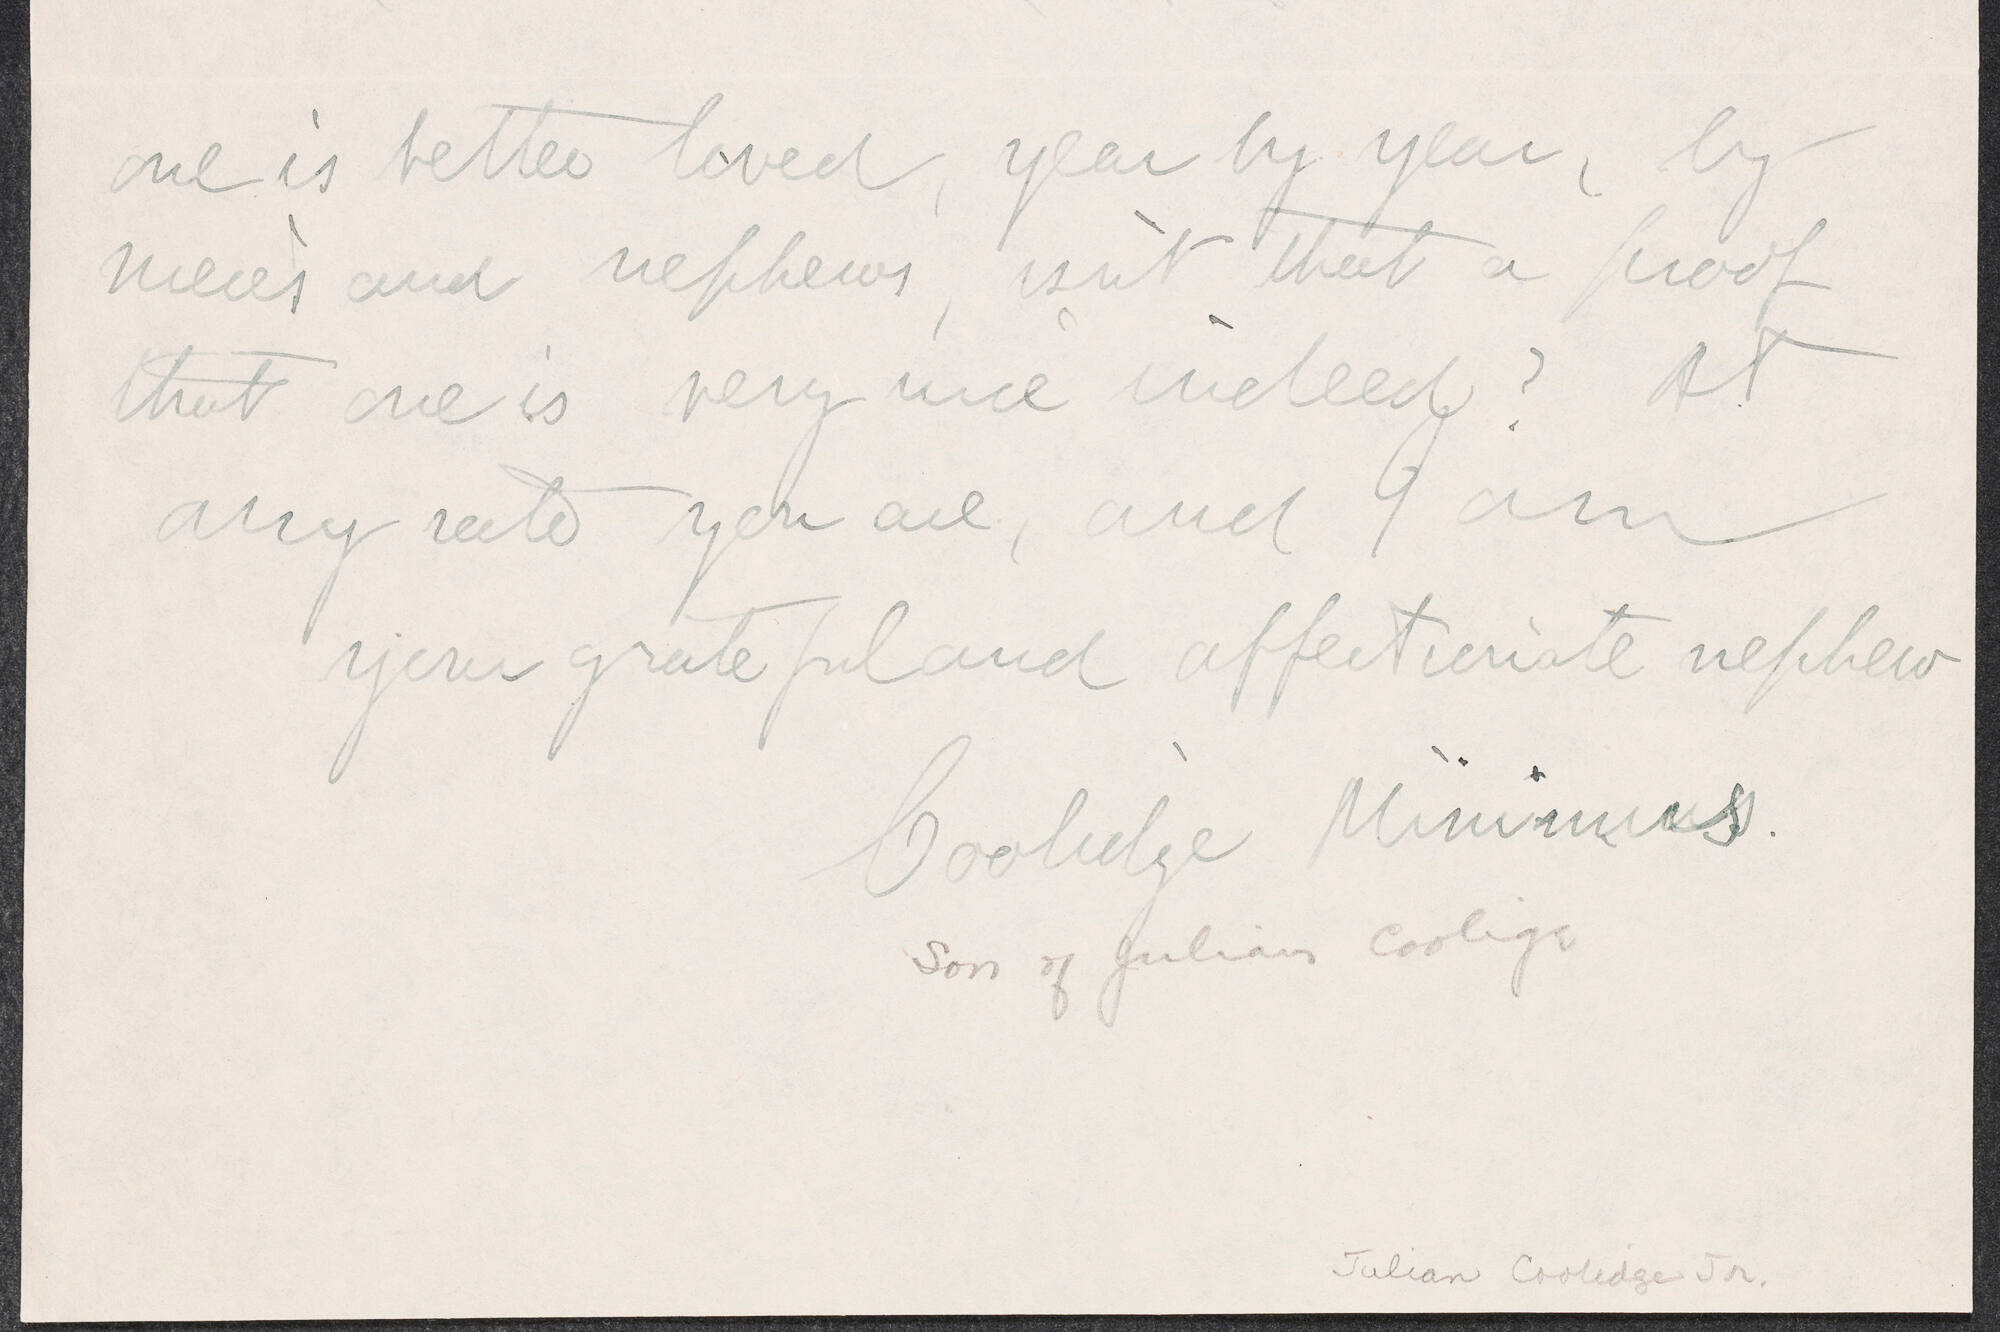 one is better loved, year by year, by
nieces and nephews, isn't that a proof
that one is very nice indeed? At
any rate you are, and I am
your grateful and affectionate nephew
Coolidge Minimus.
Son of Julian Coolige
Julian Coolidge Jr.